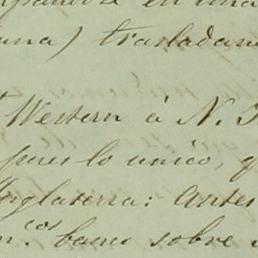 en una
una) trasladan
Western à N.
pues lo unico, q
Inglaterra: antes
n.cos banco sobre